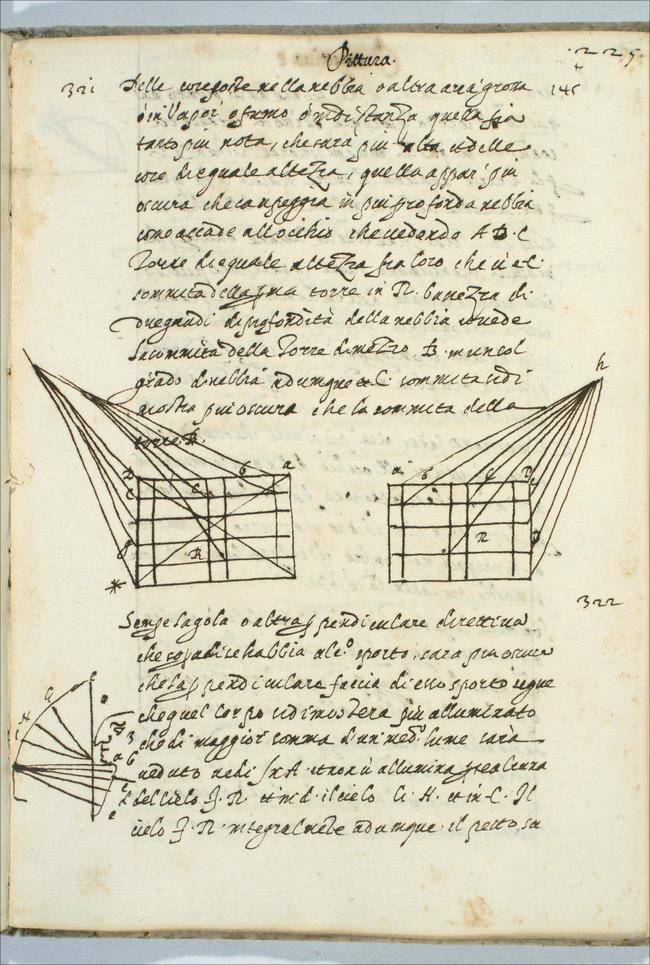 Pittura.
225
321
145
Delle cose poste nella nebbia o altra aria grossa
o in Vapori o fumo o in distanza quella fia
tanto piu nota, che sara piu alta et delle
cose di eguale altezza, quella appar piu
oscura che campeggia in piu profonda nebbia
come accade allocchio h che vedendo A B C
Torre di eguale altezza fra loro che vè C
sommita della prima torre in R. bassezza di
due gradi di profondità della nebbia et vede
la sommità della Torre di mezzo B in un sol
grado di nebbia adunque C sommita si di
mostra piu oscura che la sommita della
torre B.
h
D b a
a b c D
C
R
n
322
Sempre la gola o altra perpendiculare dirittura
che sopra di se habbia alc.o sporto, sara piu oscura
che la perpendiculare faccia di esso sporto segue
che quel corpo si dimostera piu alluminato
che di maggior somma d'un med.o lume sara
veduto vedi in A che non vi allumina parte alcuna
del cielo f. n. et in d. il cielo G. H. et in C. Il
cielo f. n. integralmente adunque il petto sa
G
H
a
b
e